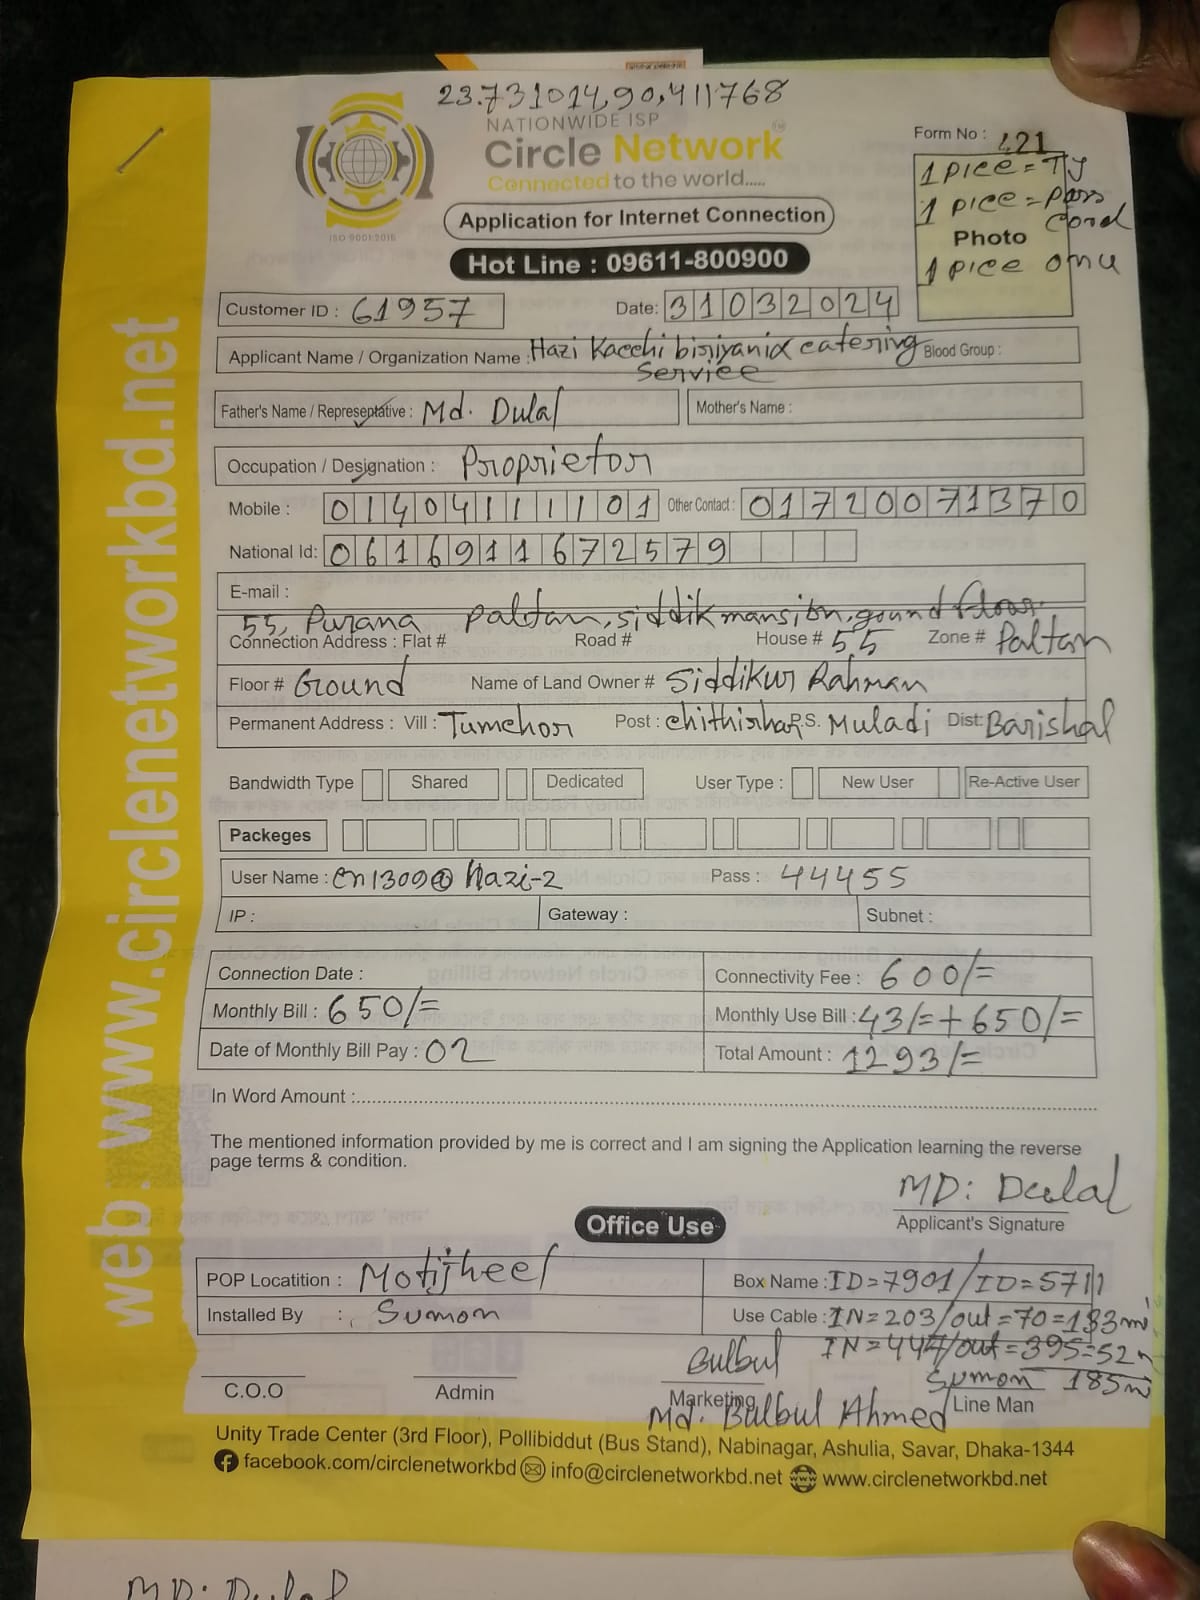 23.731014,90.411768
NATIONWIDE ISP
Circle Network
Connected to the world.....
ISO 9001:2015
Application for Internet Connection
Hot Line : 09611-800900
Form No : 421
1 pice = TJ
1 pice = pass
cord
Photo
1 pice onu
web: www.circlenetworkbd.net
Customer ID : 61957
Date: 31032024
Applicant Name / Organization Name : Hazi Kacchi biriyanid catering
Service
Blood Group :
Father's Name / Representative : Md. Dulal
Mother's Name :
Occupation / Designation : Proprietor
Mobile : 01404111101
Other Contact : 01720071370
National Id: 0616911672579
E-mail :
55, Purana paltan, siddik mansion, gound floor.
Connection Address : Flat # Road # House # 55 Zone # Paltan
Floor # Ground Name of Land Owner # Siddikur Rahman
Permanent Address : Vill : Tumchor Post : chithirhar P.S. Muladi Dist: Barishal
Bandwidth Type Shared Dedicated User Type : New User Re-Active User
Packeges
User Name : cn1309@Hazi-2 Pass : 44455
IP : Gateway : Subnet :
Connection Date : Connectivity Fee : 600/=
Monthly Bill : 650/= Monthly Use Bill : 43/=+650/=
Date of Monthly Bill Pay : 02 Total Amount : 1293/=
In Word Amount :
The mentioned information provided by me is correct and I am signing the Application learning the reverse
page terms & condition.
MD: Dulal
Applicant's Signature
Office Use
POP Locatition : Motijheel Box Name : ID=7901/ID=5711
Installed By : Sumon Use Cable : IN=203/out=70=133m
IN=447/out=395=52m
Bulbul Sumon 185m
C.O.O Admin Marketing Line Man
Md. Bulbul Ahmed
Unity Trade Center (3rd Floor), Pollibiddut (Bus Stand), Nabinagar, Ashulia, Savar, Dhaka-1344
facebook.com/circlenetworkbd info@circlenetworkbd.net www.circlenetworkbd.net
MD: Dulal